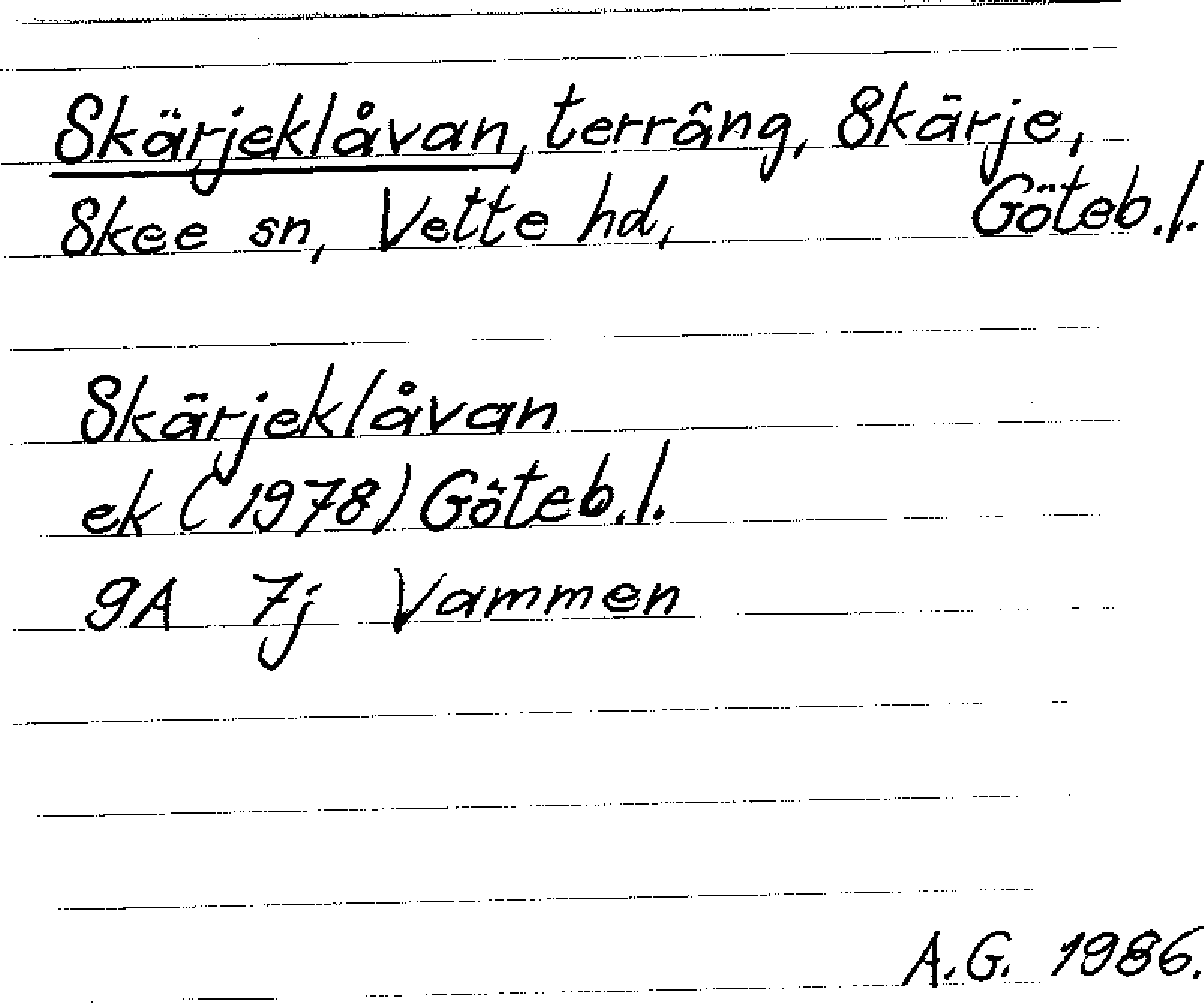 Skärjeklåvan, terräng, Skärje,
Skee sn, Vette hd, Göteb.l.
Skärjeklåvan
ek (1978) Göteb.l.
9A 7j Vammen
A.G. 1986.